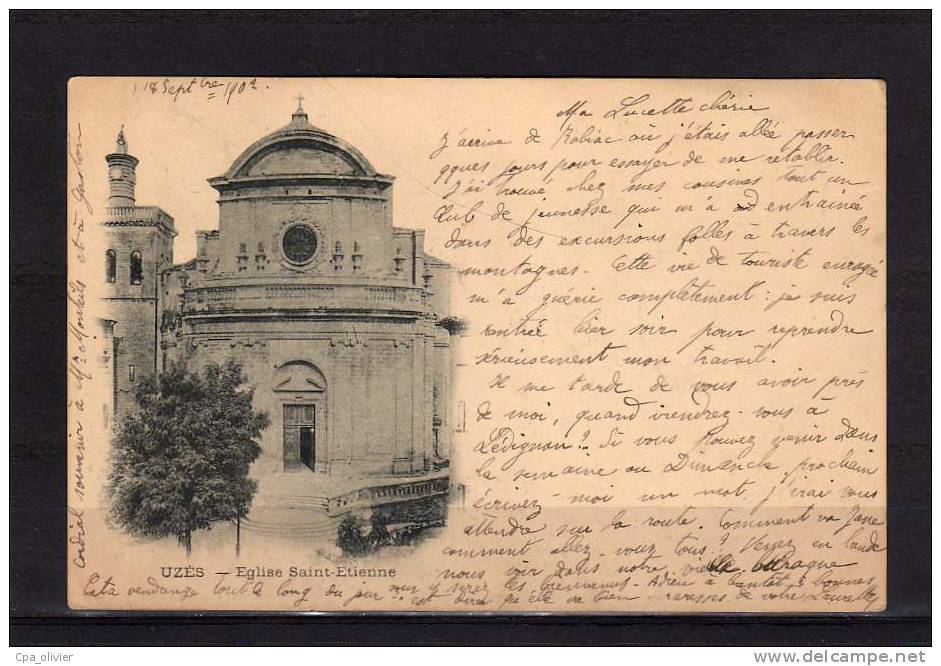 18 Septbre 1902.
Ma Lucette chérie
J'arrive de Robiac où j'étais allée passer
qques jours pour essayer de me rétablir.
J'ai trouvé chez mes cousines tout un
club de jeunesse qui m'a entrainée
dans des excursions folles à travers les
montagnes. Cette vie de touriste enragée
m'a guérie complètement : je suis
rentrée hier soir pour reprendre
sérieusement mon travail.
Il me tarde de vous avoir près
de moi, quand viendrez-vous à
Lédignan? Si vous pouvez venir dans
la semaine ou Dimanche prochain
écrivez-moi un mot. J'irai vous
attendre sur la route. Comment va Jane
comment allez-vous tous? Venez en bande
nous voir dans notre vieille baraque
vous y serez les bienvenues. Adieu à bientôt bonnes
caresses de votre Laurette
Cordial souvenir à Mr Monteils et à Gaston
UZÈS — Eglise Saint-Etienne
vendange tout le long du jour
Cpa_olivier
http://www.delcampe.net